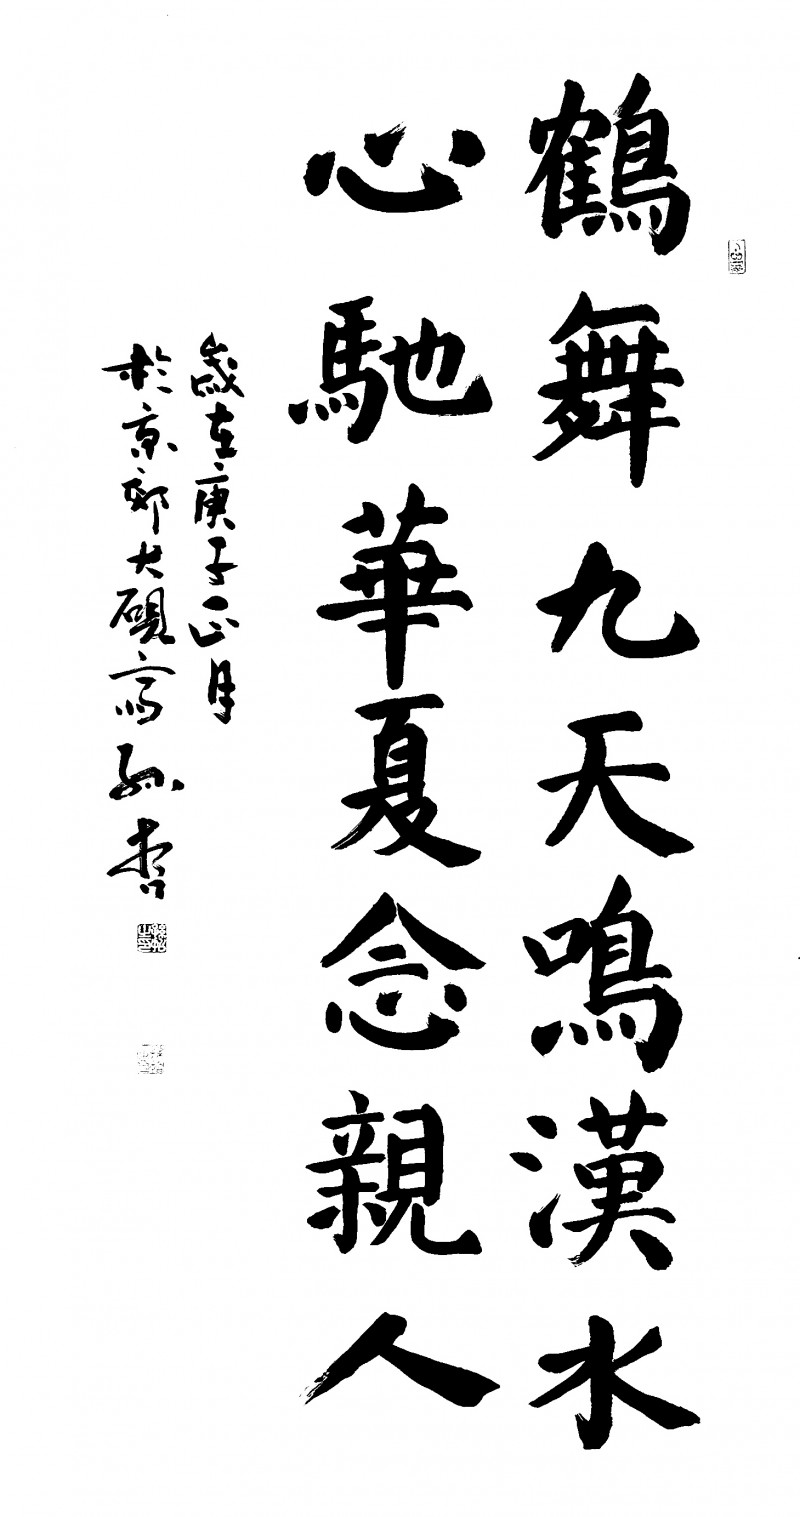 鶴舞九天鳴漢水
心馳華夏念親人
歲在庚子正月
於京郊大硯齋孫哲